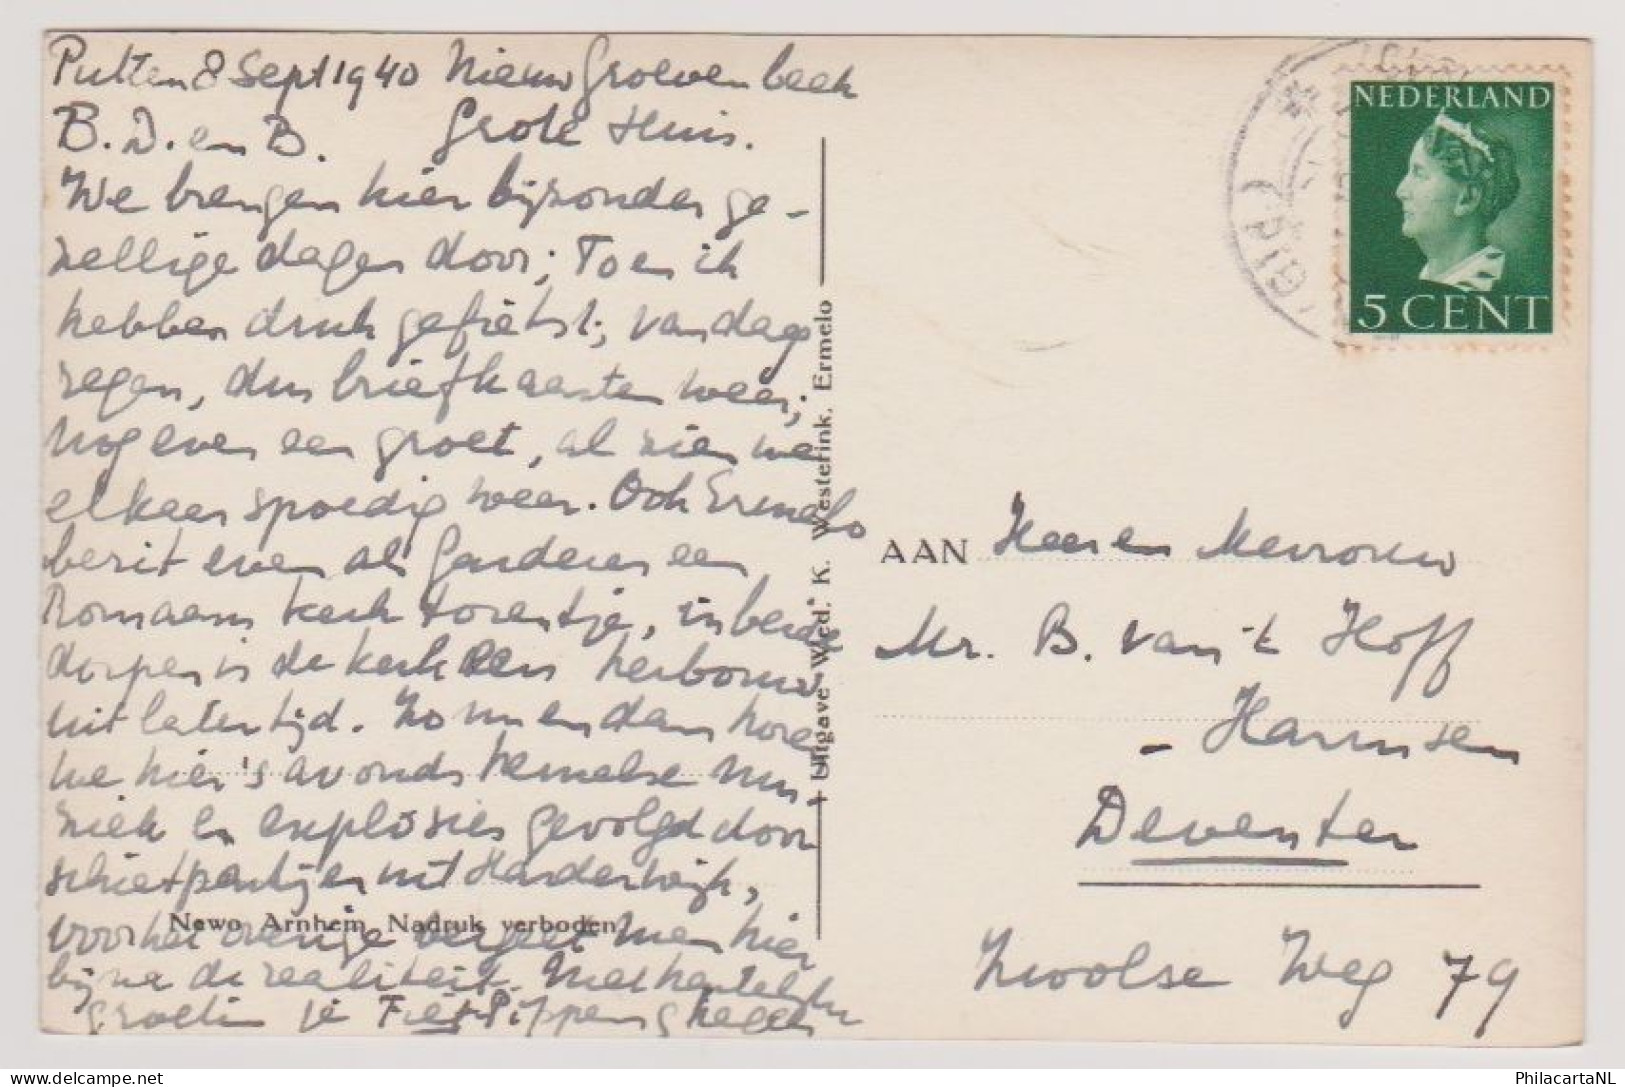 Putten 8 Sept 1940 Nieuw Groevenbeek
B. D. en B. Grote Huis.
We brengen hier bijzonder ge-
zellige dagen door; Toen ik
hebben druk gefietst; vandaag
regen, dus briefkaarten weer;
nog even een groet, al zien we
elkaar spoedig weer. Ook Ermelo
bezit even als Garderen een
Romaans kerktorentje, in beide
dorpen is de kerk een herbouw
uit later tijd. Zo nu en dan horen
we hier 's avonds hemelse mu-
ziek en explosies gevolgd door
schietpartijen uit Harderwijk,
voor het overige vergeet men hier
bijna de realiteit. Met hartelijke
groeten je
Uitgave Wed. K. Westerink, Ermelo
Newo Arnhem Nadruk verboden
NEDERLAND
5 CENT
AAN Heer en Mevrouw
Mr. B. van 't Hoff
- Harmsen
Deventer
Zwolse Weg 79
PhilacartaNL